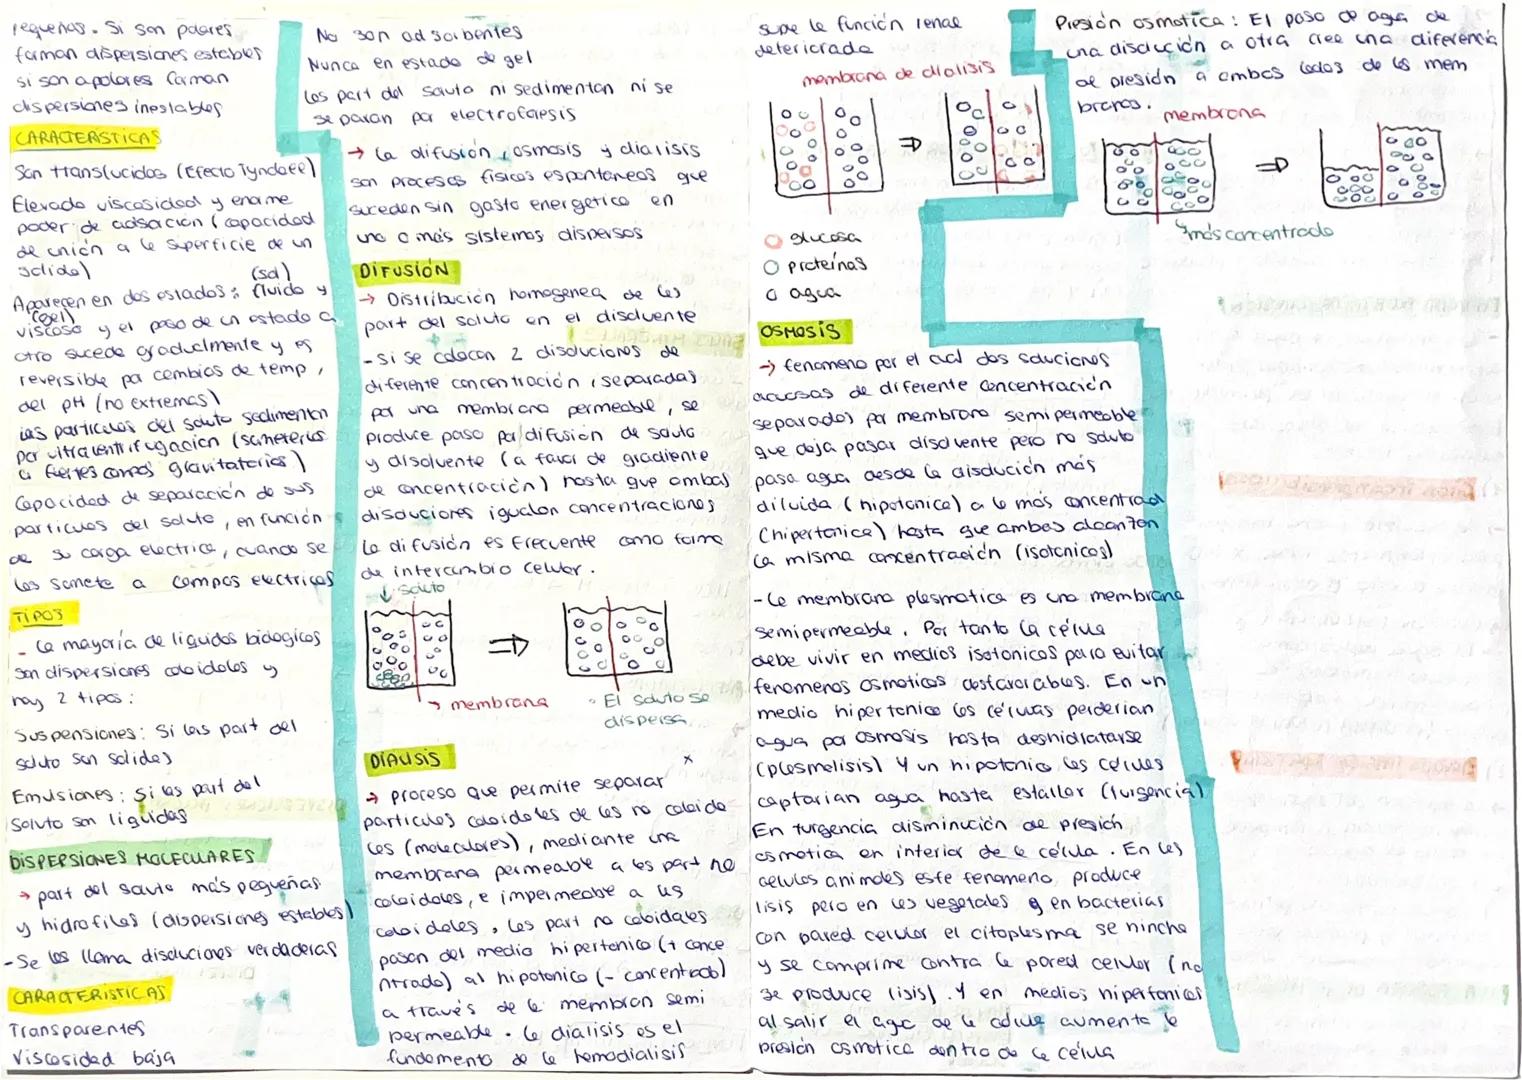 pequeñas. Si son polares
forman dispersiones estables
si son apolares forman
dispersiones inestables
CARACTERÍSTICAS
Son translucidos (Efecto Tyndall)
Elevada viscosidad y enorme
poder de adsorción (capacidad
de unión a la superficie de un
solido)
(sol)
Aparecen en dos estados: fluido y
(gel)
viscoso y el paso de un estado a
otro sucede gradualmente y es
reversible por cambios de temp,
del pH (no extremos)
Las particulas del soluto sedimentan
por ultracentrifugación (someterlas
a fuertes campos gravitatorios)
Capacidad de separación de sus
particulas del soluto, en función
de su carga electrica, cuando se
les somete a campos electricos
TIPOS
- La mayoría de liquidos biologicos
son dispersiones coloidales y
hay 2 tipos:
Suspensiones: Si las part del
soluto son solidas
Emulsiones: Si las part del
soluto son liquidas
DISPERSIONES MOLECULARES
→ part del soluto más pequeñas
y hidrofilas (dispersiones estables)
- Se les llama disoluciones verdaderas
CARACTERÍSTICAS
Transparentes
Viscosidad baja
No son adsorbentes
Nunca en estado de gel
Las part del soluto ni sedimentan ni se
separan por electroforesis
→ La difusión, osmosis y dialisis
son procesos físicos espontaneos que
suceden sin gasto energetico en
uno o más sistemas dispersos
DIFUSIÓN
→ Distribución homogenea de las
part del soluto en el disolvente
- si se colocan 2 disoluciones de
diferente concentración, separadas
por una membrana permeable, se
produce paso por difusión de soluto
y disolvente (a favor de gradiente
de concentración) hasta que ambas
disoluciones igualan concentraciones
La difusión es frecuente como forma
de intercambio celular.
soluto
membrana
El soluto se
dispersa
DIÁLISIS
x
→ proceso que permite separar
particulas coloidales de las no coloida
les (moleculares), mediante una
membrana permeable a las part no
coloidales, e impermeable a las
coloidales. Las part no coloidales
pasan del medio hipertonico (+ conce
ntrado) al hipotonico (- concentrado)
a través de la membran semi
permeable. La dialisis es el
fundamento de la hemodialisis
supe la función renal
deteriorada
membrana de dialisis
glucosa
proteínas
agua
OSMOSIS
→ fenomeno por el cual dos soluciones
acuosas de diferente concentración
separados por membrana semipermeable
que deja pasar disolvente pero no soluto
pasa agua desde la disolución más
diluida (hipotonica) a la más concentrad
(hipertonica) hasta que ambas alcanzan
la misma concentración (isotonicas)
- La membrana plasmatica es una membrana
semipermeable. Por tanto la célula
debe vivir en medios isotonicos para evitar
fenomenos osmoticos desfavorables. En un
medio hipertonico las células perderian
agua por osmosis hasta deshidratarse
(plasmolisis) y un hipotonico las células
captarian agua hasta estallar (turgencia)
En turgencia disminución de presión
osmotica en interior de la célula. En las
celulas animales este fenomeno produce
lisis pero en las vegetales y en bacterias
con pared celular el citoplasma se hincha
y se comprime contra la pared celular (no
se produce lisis). Y en medios hipertonicos
al salir el agc de la célula aumenta la
presión osmotica dentro de la célula
Presión osmotica: El paso de agua de
una disolución a otra crea una diferencia
de presión a ambos lados de las mem
branas.
membrana
más concentrado